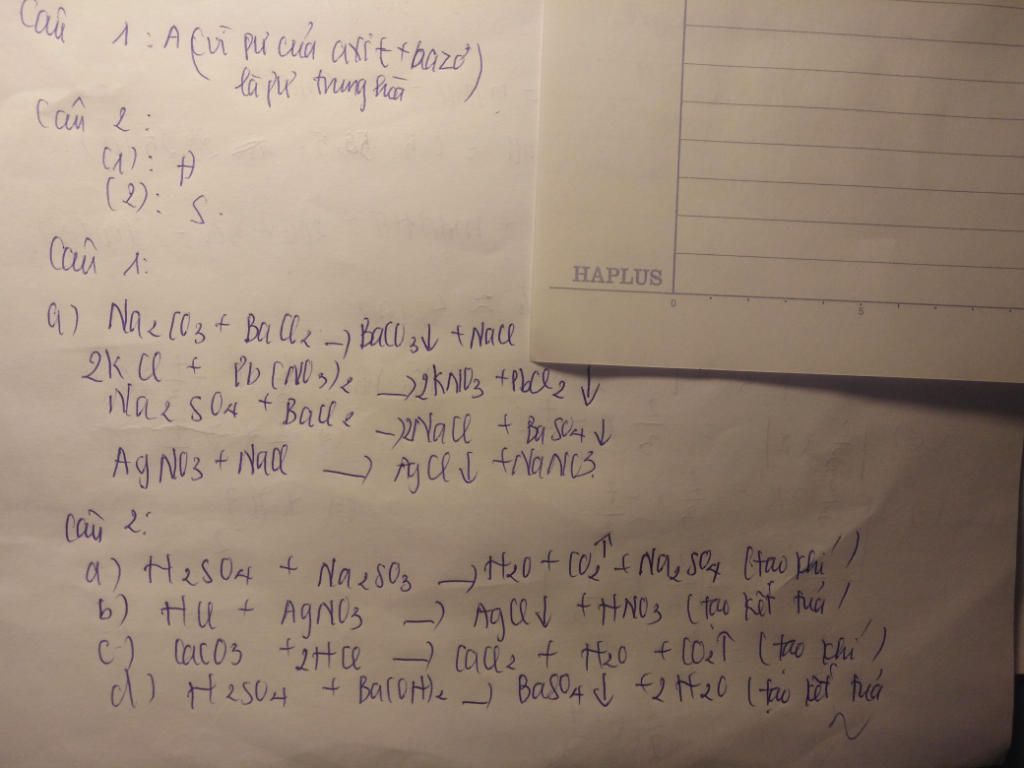 Câu 1: A (vì pư của axit + bazơ
là pư trung hòa)
Câu 2:
(1): Đ
(2): S.
Câu 1:
a) Na2CO3 + BaCl2 → BaCO3↓ + NaCl
2KCl + Pb(NO3)2 → 2KNO3 + PbCl2↓
Na2SO4 + BaCl2 → 2NaCl + BaSO4↓
AgNO3 + NaCl → AgCl↓ + NaNO3.
Câu 2:
a) H2SO4 + Na2SO3 → H2O + CO2↑ + Na2SO4 (tạo khí)
b) HCl + AgNO3 → AgCl↓ + HNO3 (tạo kết tuả)
c) CaCO3 + 2HCl → CaCl2 + H2O + CO2↑ (tạo khí)
d) H2SO4 + Ba(OH)2 → BaSO4↓ + 2H2O (tạo kết tuả
HAPLUS
0 5